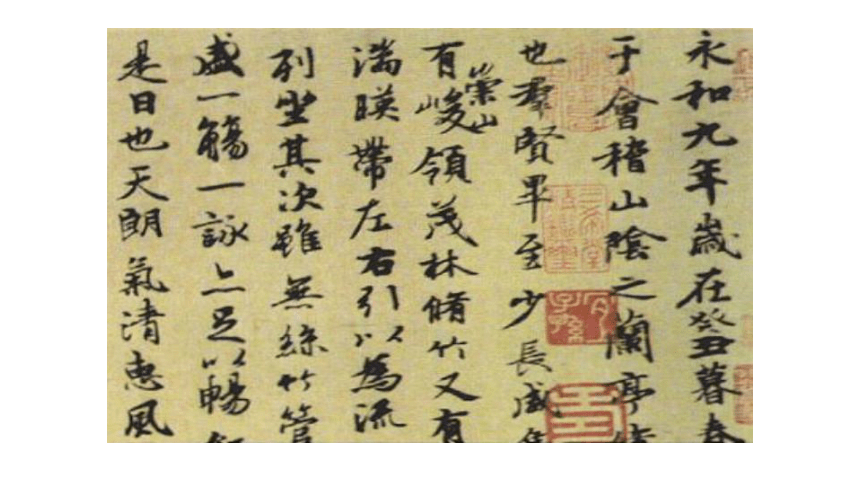 永和九年歲在癸丑暮春
于會稽山陰之蘭亭脩
也羣賢畢至少長咸集
有崇山峻領茂林脩竹又有
湍暎帶左右引以為流
列坐其次雖無絲竹管
盛一觴一詠亦足以暢叙
是日也天朗氣清惠風